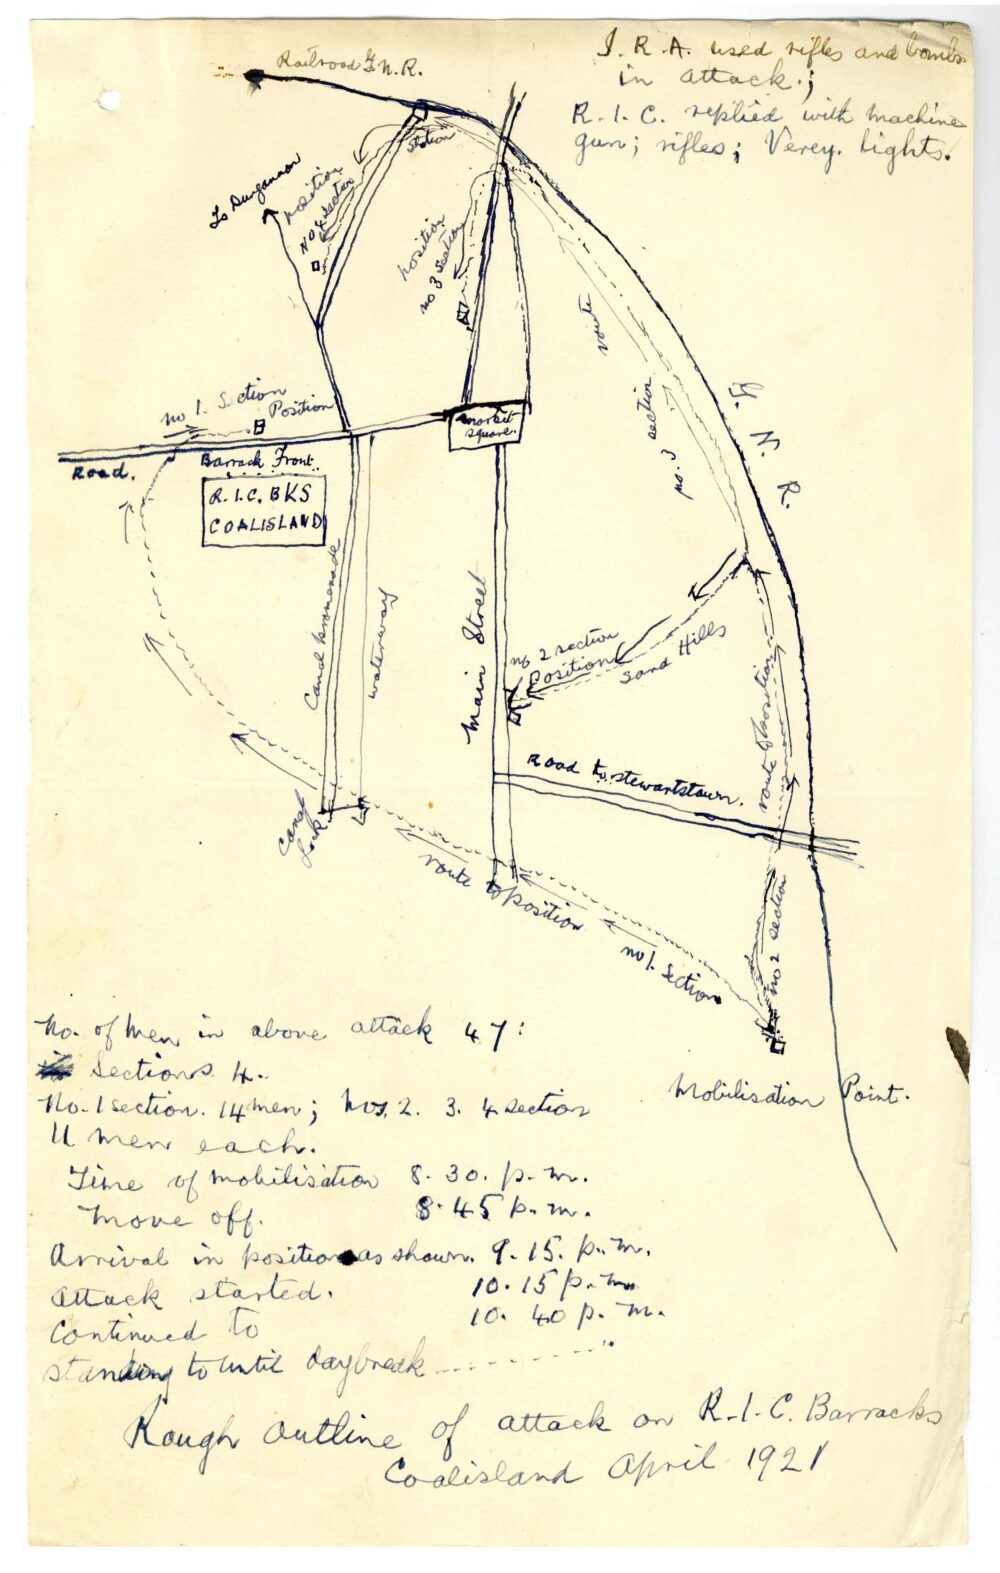 I. R. A. used rifles and bombs
in attack.;
R. I. C. replied with machine
gun; rifles; Verey. Lights.
Railroad G.N.R.
Station
To Dungannon
Position
No 4 Section
Position
no 3 section
route
no. 3 section
G. N. R.
no 1. Section
Position
Market
Square.
Road.
Barrack Front.
R. I. C. BKS
COALISLAND
Canal Promenade
waterway
Main Street
no 2 section
Position
Sand Hills
route to position
Road to Stewartstown.
Canal
Lock
route to position
no 1. Section
no 2 section
Mobilisation Point.
No. of men in above attack 47:
Sections 4.
No. 1 section. 14 men; Nos. 2. 3. 4 section
11 men each.
Time of mobilisation 8.30. p.m.
Move off. 8.45 p.m.
Arrival in position as shown. 9.15. p.m.
Attack started. 10.15 p.m.
Continued to 10.40 p.m.
standing to until daybreak ---------"
Rough outline of attack on R.I.C. Barracks
Coalisland April 1921